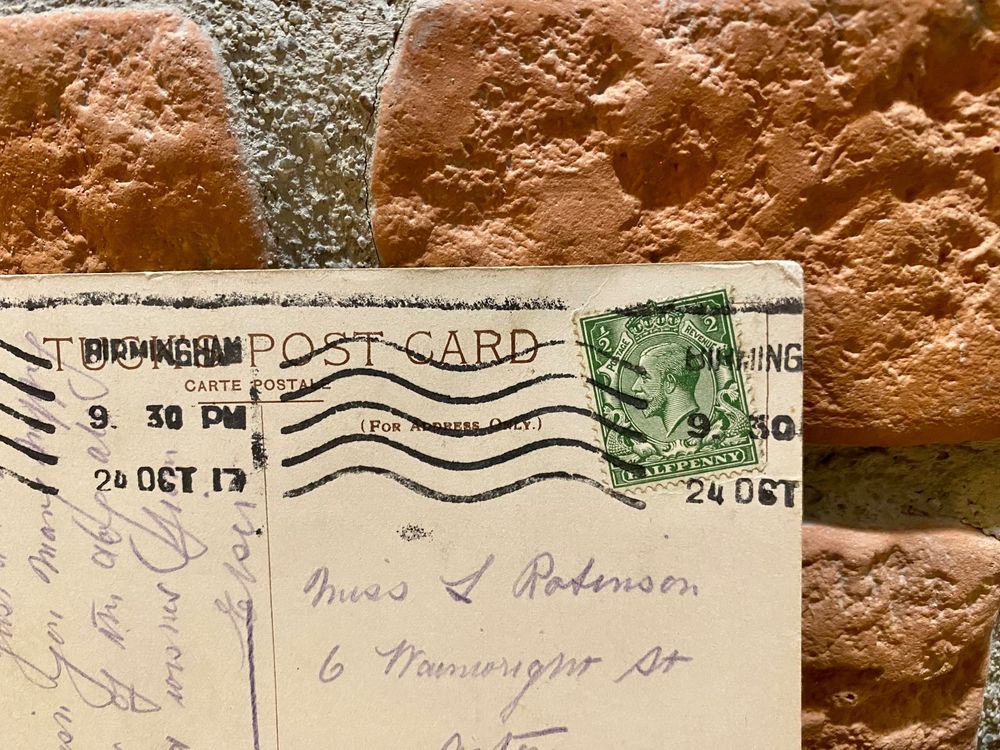 TUCK'S POST CARD
CARTE POSTALE
(FOR ADDRESS ONLY.)
BIRMINGHAM
9. 30 PM
24 OCT 17
½ ½
POSTAGE REVENUE
HALFPENNY
BIRMING
9. 30
24 OCT
Miss L Robinson
6 Wainwright St
Aston
you many
of the
Elsie